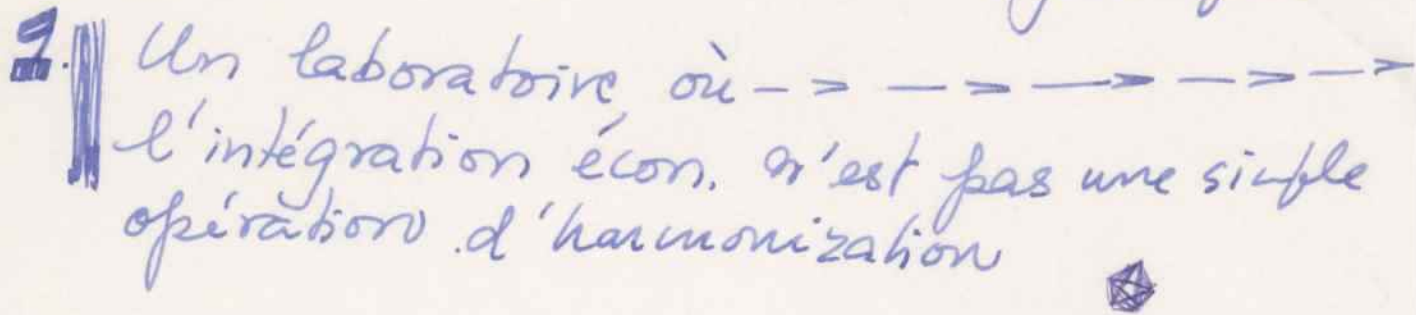 1. Un laboratoire où -> -> -> -> ->
l'intégration écon. n'est pas une simple
opération d'harmonization